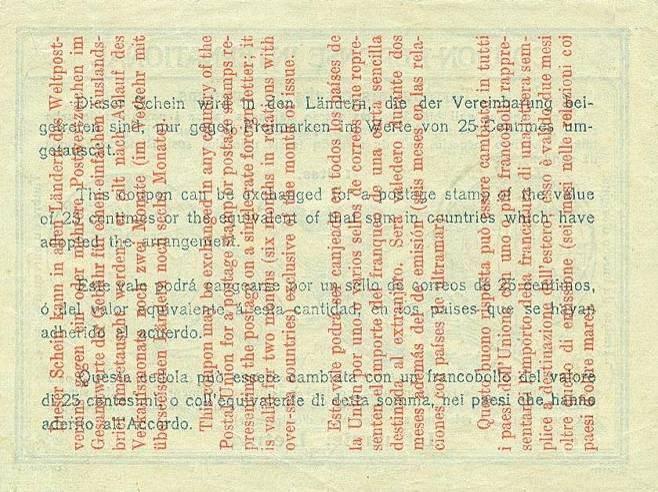 Dieser Schein wird in den Ländern, die der Vereinbarung bei-
getreten sind, nur gegen Freimarken im Werte von 25 Centimes um-
getauscht.
This coupon can be exchanged for a postage stamp of the value
of 25 centimes or the equivalent of that sum in countries which have
adopted the arrangement.
Este vale podrá cangearse por un sello de correos de 25 centimos,
ó del valor equivalente á esta cantidad, en los paises que se hayan
adherido al acuerdo.
Questa cedola può essere cambiata con un francobollo del valore
di 25 centesimi o coll'equivalente di detta somma, nei paesi che hanno
aderito all'Accordo.
Dieser Schein kann in allen Ländern des Weltpost-
vereins gegen eine oder mehrere Postwertzeichen im
Gesamtwerte der Gebühr für einen einfachen Auslands-
brief umgetauscht werden. Er gilt nach Ablauf des
Verkaufsmonats noch zwei Monate (im Verkehr mit
überseeischen Ländern noch sechs Monate).
This coupon may be exchanged in any country of the
Postal Union for a postage stamp or postage stamps re-
presenting the postage on a single rate foreign letter; it
is valid for two months (six months in relations with
over-sea countries) exclusive of the month of issue.
Este vale podrá ser canjeado en todos los países de
la Unión por uno ó varios sellos de correos que repre-
senten el importe del franqueo de una carta sencilla
destinada al extranjero. Será valedero durante dos
meses, además del de emisión (seis meses en las rela-
ciones con países de Ultramar).
Questo buono risposta può essere cambiato in tutti
i paesi dell'Unione con uno o più francobolli rappre-
sentanti l'importo della francatura di una lettera sem-
plice a destinazione dell'estero; esso è valido due mesi
oltre quello di emissione (sei mesi nelle relazioni coi
paesi d'oltre mare).